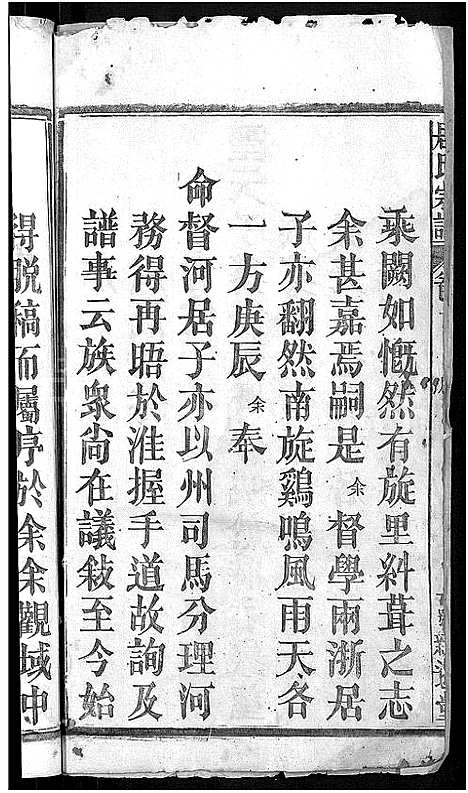 居氏宗譜
乘闕如慨然有旋里糾葺之志
余甚嘉焉嗣是余督學兩浙居
子亦翻然南旋鷄鳴風雨天各
一方庚辰余奉
命督河居子亦以州司馬分理河
務得再晤於淮握手道故詢及
譜事云族衆尚在議敍至今始
得脱稿而屬序於余余觀域中